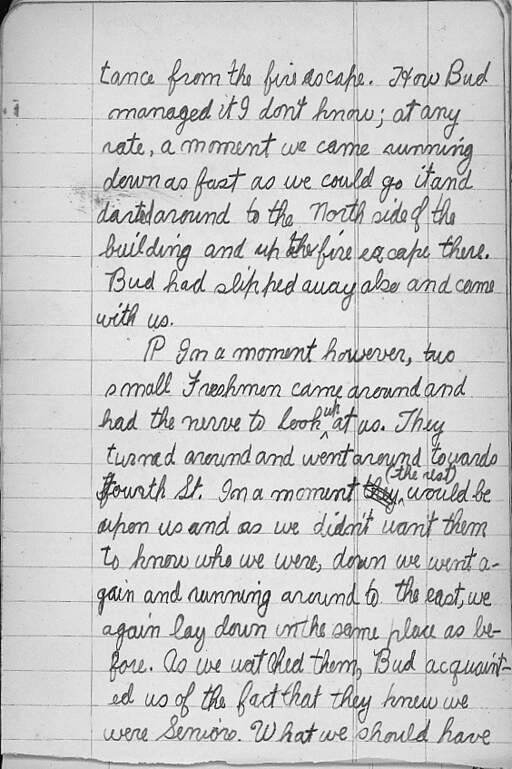 tance from the fire escape. How Bud
managed it I don't know; at any
rate, a moment we came running
down as fast as we could go it and
darted around to the North side of the
building and up the fire escape there.
Bud had slipped away also and came
with us.
P In a moment however, two
small Freshmen came around and
had the nerve to look up at us. They
turned around and went around towards
Fourth St. In a moment (the rest) would be
upon us and as we didn't want them
to know who we were, down we went a-
gain and running around to the east, we
again lay down in the same place as be-
fore. As we watched them, Bud acquaint-
ed us of the fact that they knew we
were Seniors. What we should have